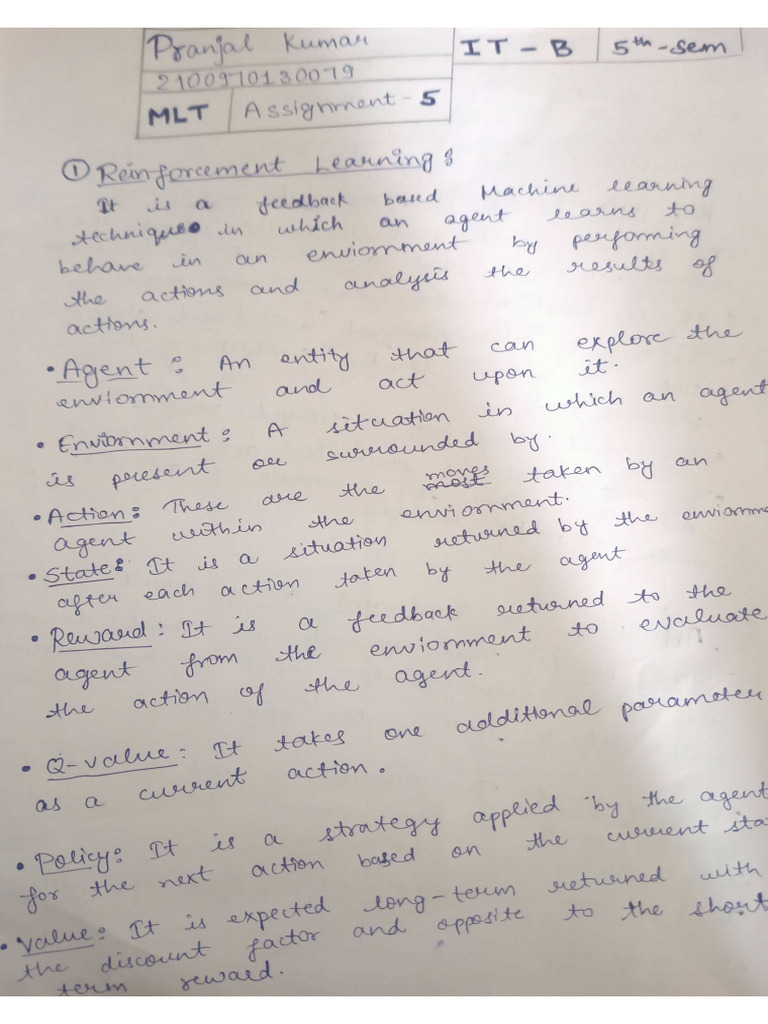 Pranjal Kumar
IT - B
5th - sem
2100970130079
MLT
Assignment - 5
① Reinforcement Learning :
It is a feedback based Machine learning
technique in which an agent learns to
behave in an enviornment by performing
the actions and analysis the results of
actions.
• Agent : An entity that can explore the
enviornment and act upon it.
• Enviornment : A situation in which an agent
is present or surrounded by.
• Action : These are the moves taken by an
agent within the enviornment.
• State : It is a situation returned by the enviornme
after each action taken by the agent
• Reward : It is a feedback returned to the
agent from the enviornment to evaluate
the action of the agent.
• Q-value : It takes one additional parameter
as a current action.
• Policy : It is a strategy applied by the agent
for the next action based on the current sta
• Value : It is expected long-term returned with
the discount factor and opposite to the short
term reward.